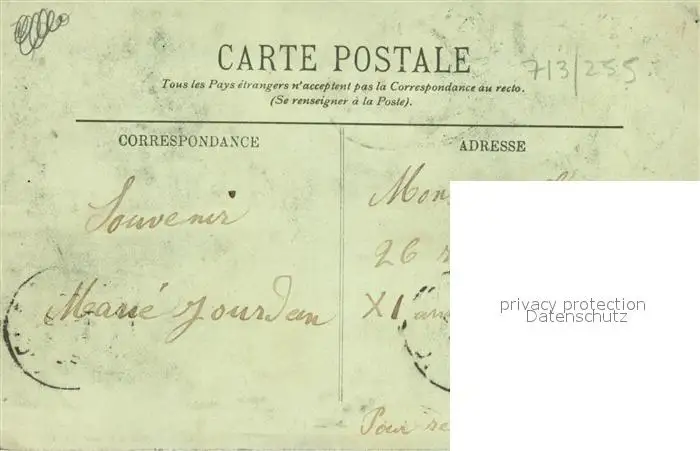 CARTE POSTALE
713/255
Tous les Pays étrangers n'acceptent pas la Correspondance au recto.
(Se renseigner à la Poste).
CORRESPONDANCE
ADRESSE
Souvenir
Marie Jourdan
26
X1
Pour
privacy protection
Datenschutz